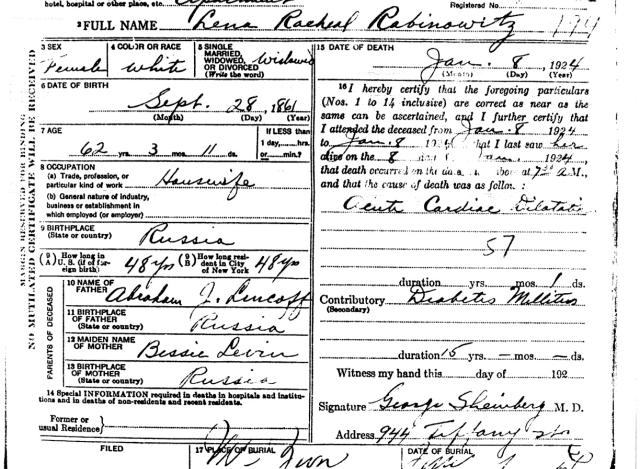 hotel, hospital or other place, etc. Apartment
Registered No.
2 FULL NAME Lena Racheal Rabinowitz
3 SEX Female
4 COLOR OR RACE White
5 SINGLE MARRIED, WIDOWED, OR DIVORCED (Write the word) Widowed
6 DATE OF BIRTH Sept. 28, 1861
(Month) (Day) (Year)
7 AGE 62 yrs. 3 mos. 11 ds.
If LESS than 1 day,....hrs. or....min.?
8 OCCUPATION
(a) Trade, profession, or particular kind of work Housewife
(b) General nature of industry, business or establishment in which employed (or employer)
9 BIRTHPLACE (State or country) Russia
(9A) How long in U.S. (if of foreign birth) 48 yrs
(9B) How long resident in City of New York 48 yrs
PARENTS OF DECEASED
10 NAME OF FATHER Abraham J. Lincoff
11 BIRTHPLACE OF FATHER (State or country) Russia
12 MAIDEN NAME OF MOTHER Bessie Levin
13 BIRTHPLACE OF MOTHER (State or country) Russia
14 Special INFORMATION required in deaths in hospitals and institutions and in deaths of non-residents and recent residents.
Former or usual Residence
FILED
17 PLACE OF BURIAL
Mt. Zion
DATE OF BURIAL
15 DATE OF DEATH
Jan. 8, 1924
(Month) (Day) (Year)
16 I hereby certify that the foregoing particulars
(Nos. 1 to 14 inclusive) are correct as near as the
same can be ascertained, and I further certify that
I attended the deceased from Jan. 8 1924
to Jan. 8 1924 that I last saw her
alive on the 8 day of Jan. 1924,
that death occurred on the date above at 7 A.M.,
and that the cause of death was as follows:
Acute Cardiac Dilatati
57
duration yrs. mos. 1 ds.
Contributory (Secondary) Diabetis Mellitus
duration 15 yrs. — mos. — ds.
Witness my hand this day of 192
Signature George Sheinberg M. D.
Address 944 Tiffany St
MARGIN RESERVED FOR BINDING
NO MUTILATED CERTIFICATE WILL BE RECEIVED